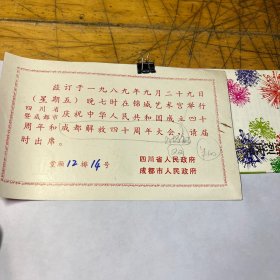 兹订于一九八九年九月二十九日
（星期五）晚七时在锦城艺术宫举行
四川省暨成都市庆祝中华人民共和国成立四十
周年和成都解放四十周年大会，请届
时出席。
四川省人民政府
成都市人民政府
堂厢12排14号